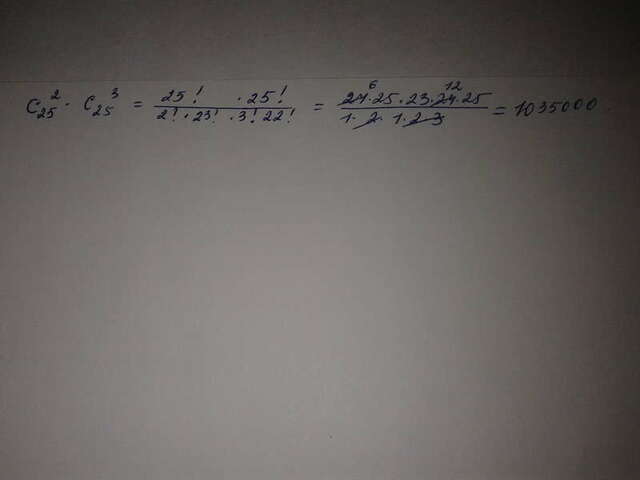 C₂₅² · C₂₅³ = (25! · 25!)/(2! · 23! · 3! 22!) = (24 · 25 · 23 · 24 · 25)/(1 · 2 · 1 · 2 · 3) 6 12 = 1035000